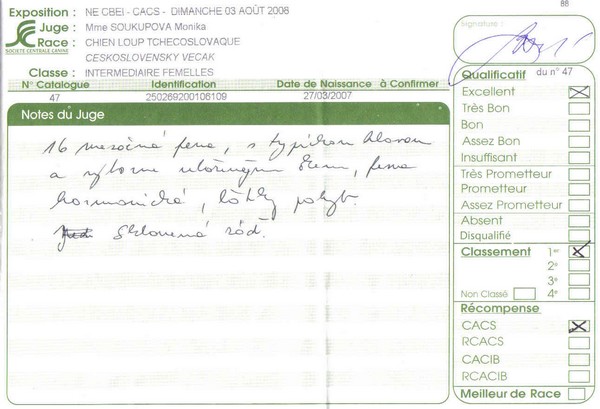 88
Exposition : NE CBEI - CACS - DIMANCHE 03 AOÛT 2008
Juge : Mme SOUKUPOVA Monika
Race : CHIEN LOUP TCHECOSLOVAQUE
CESKOSLOVENSKY VECAK
SOCIETE CENTRALE CANINE
Classe : INTERMEDIAIRE FEMELLES
N° Catalogue Identification Date de Naissance à Confirmer
47 250269200106109 27/03/2007
Notes du Juge
16 mesočná fena, s typickou hlavou
a výborne uloženým, fena
harmonická, pohyb.
Sklonená záď.
Signature :
Qualificatif du n° 47
Excellent
Très Bon
Bon
Assez Bon
Insuffisant
Très Prometteur
Prometteur
Assez Prometteur
Absent
Disqualifié
Classement 1er
2e
3e
Non Classé 4e
Récompense
CACS
RCACS
CACIB
RCACIB
Meilleur de Race